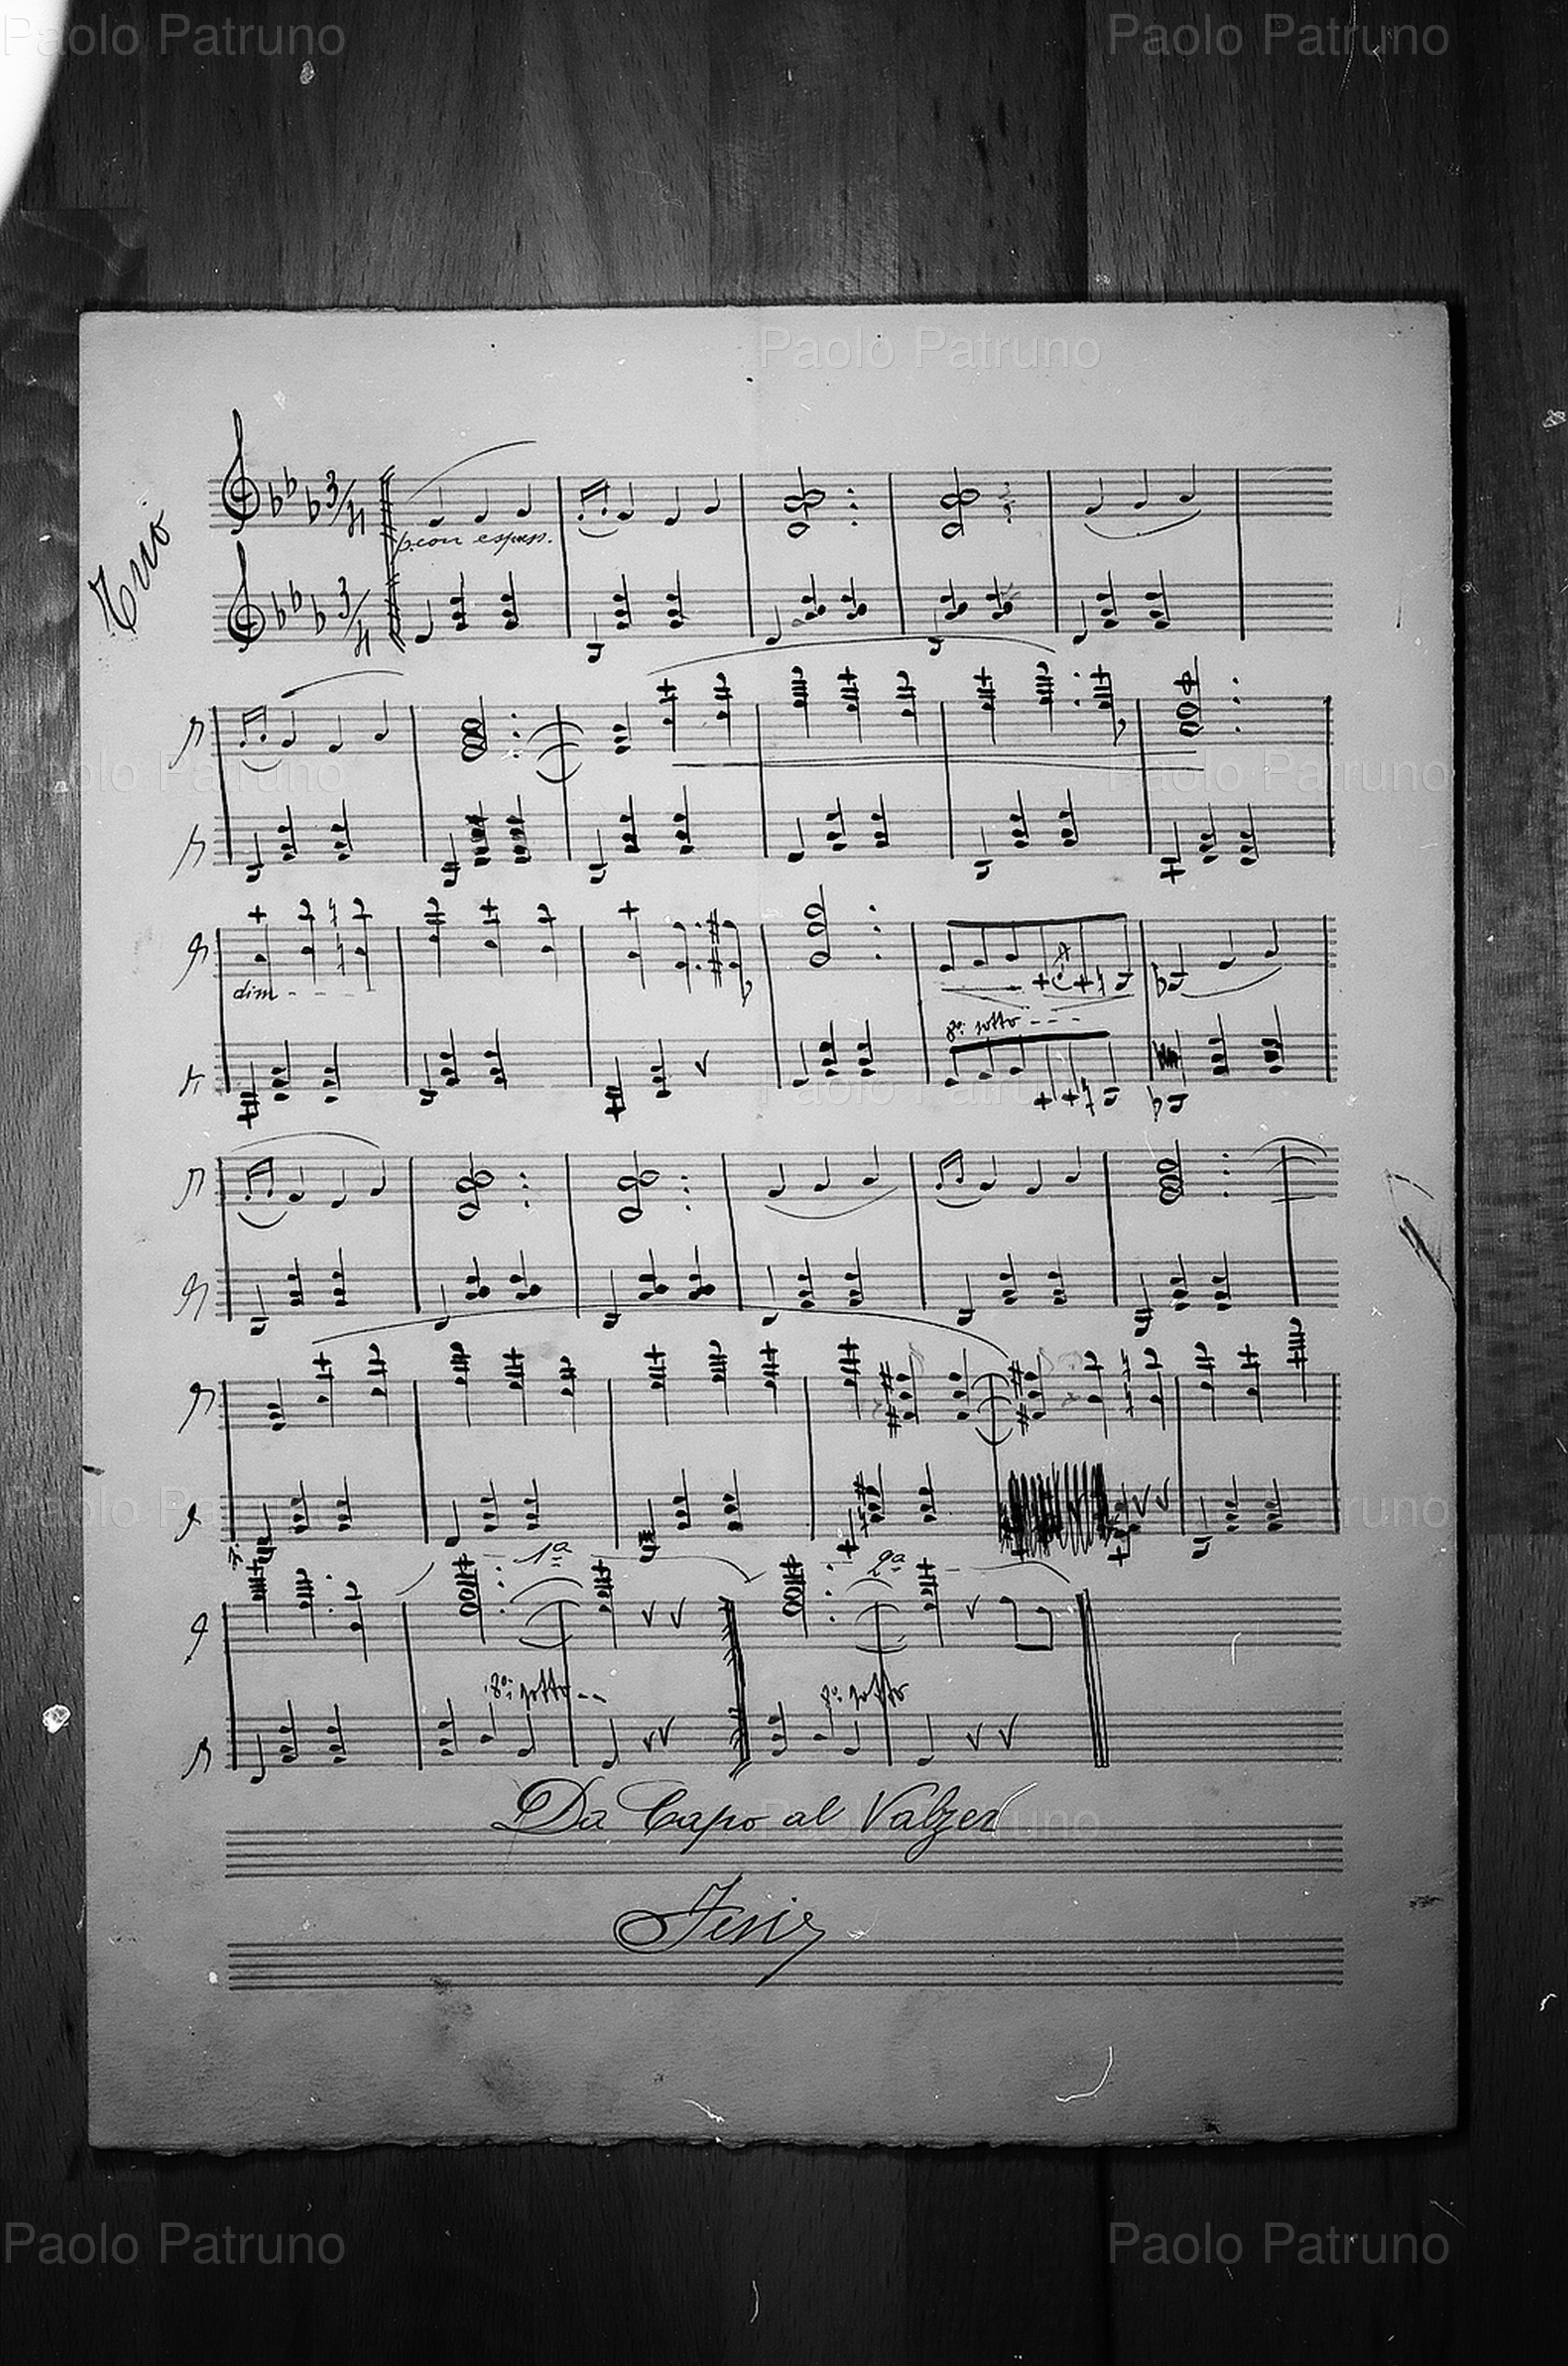 Paolo Patruno Paolo Patruno
Paolo Patruno
Trio
3/4
p. con espress.
3/4
Paolo Patruno Paolo Patruno
dim - - - -
8ª sotto - - -
Paolo Patruno
Paolo Patruno Paolo Patruno
1ª 2ª
8ª sotto - - 8ª sotto
Da Capo al Valzer
Paolo Patruno
Paolo Patruno Paolo Patruno